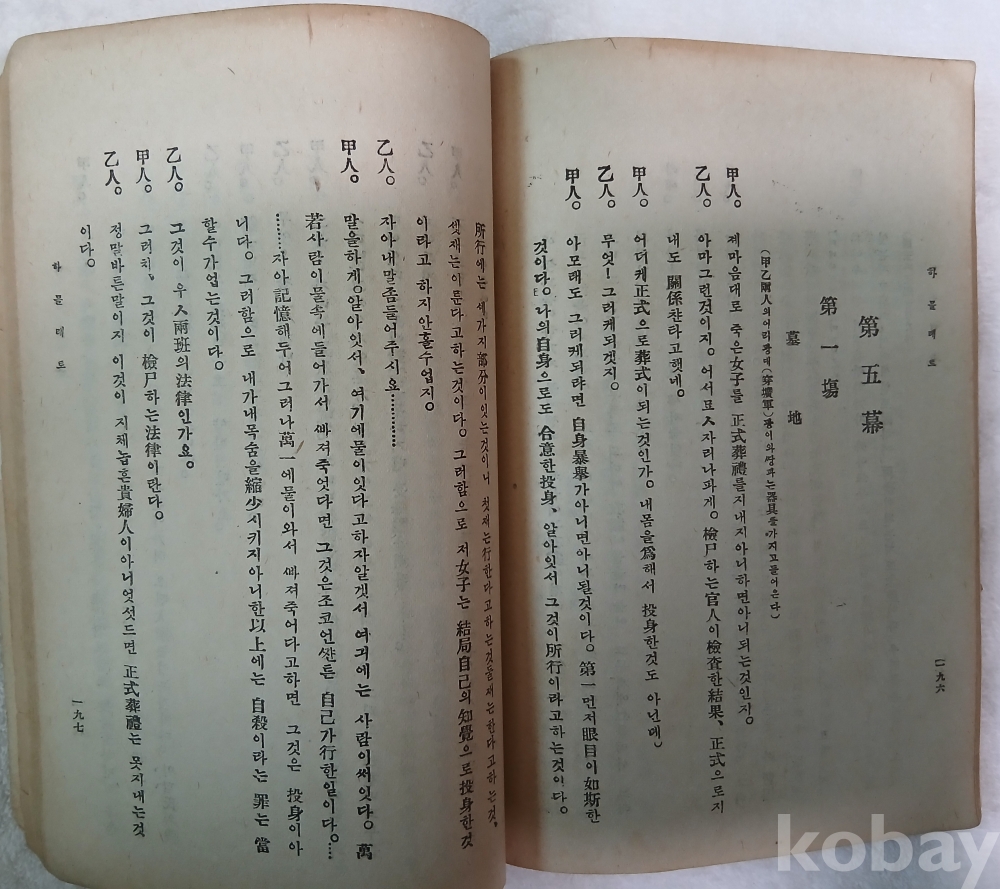 하믈레트
第五幕
第一塲
墓地
(甲乙兩人의어리광대(穿壙軍)광이와쌍파는器具를가지고들어온다)
甲人。 졔마음대로 죽은女子를 正式葬禮를지내지아니하면아니되는것인지。
乙人。 아마그런것이지。어서묘人자리나파게。檢尸하는官人이檢查한結果、正式으로지
내도 關係찬타고햇네。
甲人。 어더케正式으로葬式이되는것인가。내몸을爲해서 投身한것도 아닌데。
乙人。 무엇！그러케되겟지。
甲人。 아모래도 그러케되랴면 自身暴擧가아니면아니될것이다。第一 먼저眼目이如斯한
것이다。나의自身으로도 合意한投身、알아잇서 그것이所行이라고하는것이다。
一九六
所行에는 세가지部分이잇는것이니 첫재는行한다고하는것둘재는한다고하는것。
셋재는이룬다고하는것이다。그러함으로 저女子는 結局自己의知覺으로投身한것
이라고 하지안흘수업지。
乙人。 자아내말좀들어주시요…………
甲人。 말을하게。알아잇서、여기에물이잇다고하자알겟서 여긔에는 사람이써잇다。萬
若사람이물속에들어가서 ᄲᅡ져죽엇다면 그것은조코언ᄶᅢᆫ튼 自己가行한일이다。……
………자아記憶해두어그러나萬一에물이와서 ᄲᅡ져죽어다고하면 그것은 投身이아
니다。그러함으로 내가내목숨을縮少시키지아니한以上에는 自殺이라는 罪는 當
할수가업는것이다。
乙人。 그것이 우人兩班의法律인가요。
甲人。 그러치、그것이 檢尸하는法律이란다。
乙人。 정말바른말이지 이것이 지체놉흔貴婦人이아니엇섯드면 正式葬禮는 못지내는것
이다。
하믈레트
一九七
kobay